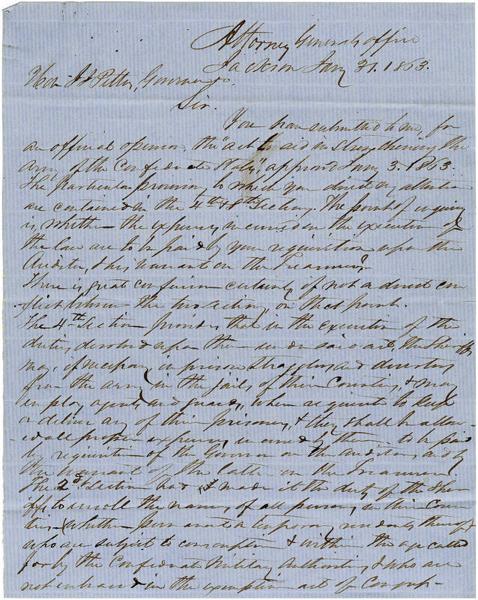 Attorney Generals office
Jackson Jany 31. 1863.
Hon J J Pettus, Governor
Sir.
You have submitted to me, for
an official opinion, the act to aid in strengthening the
army of the Confederate States, approved Jany 3. 1863.
The particular provisions to which you direct my attention
are contained in the 4th & 8th Sections. The point of inquiry
is, whether the expenses incurred in the execution of
the law are to be paid by your requisition upon the
Auditor, & his warrant on the Treasurer.
There is great confusion certainly if not a direct con
flict between the two sections, on that point.
The 4th Section provides that in the execution of the
duties, devolved upon them under said act, the Sheriffs
may, if necessary imprison stragglers and deserters
from the army, in the jails of their Counties, & may
employ agents and guards, when requisite to keep
or deliver any of their prisoners, & they shall be allow
-ed all proper expenses, incurred by them, to be paid
by requisition of the Governor on the auditor, and by
the warrant of the latter on the Treasurer.
The 2d Section had made it the duty of the Sher
iffs to enroll the names, of all persons, in their Coun
ties, whether permanent or temporary residents thereof
who are subject to conscription & within the age called
for by the Confederate Military Authorities, & who are
not embraced in the exemption act of Congress-